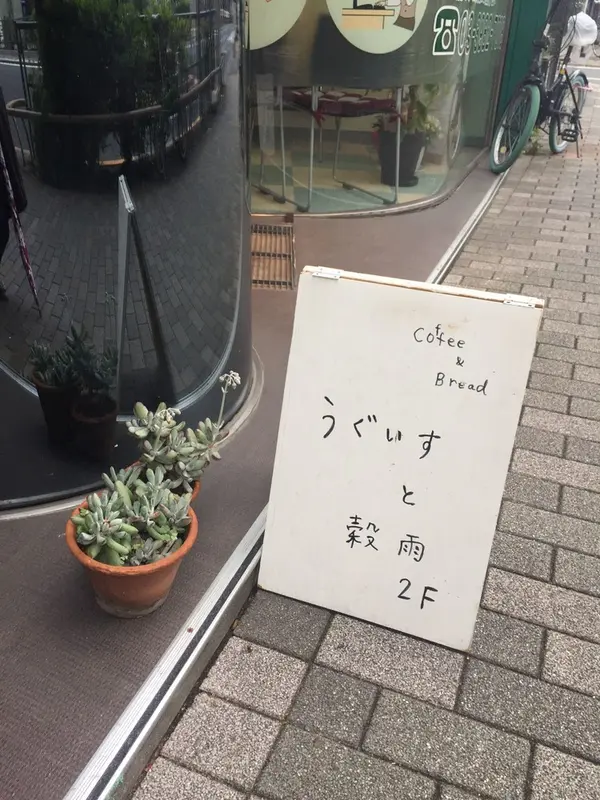 Coffee
&
Bread
うぐいす
と
穀雨
2F